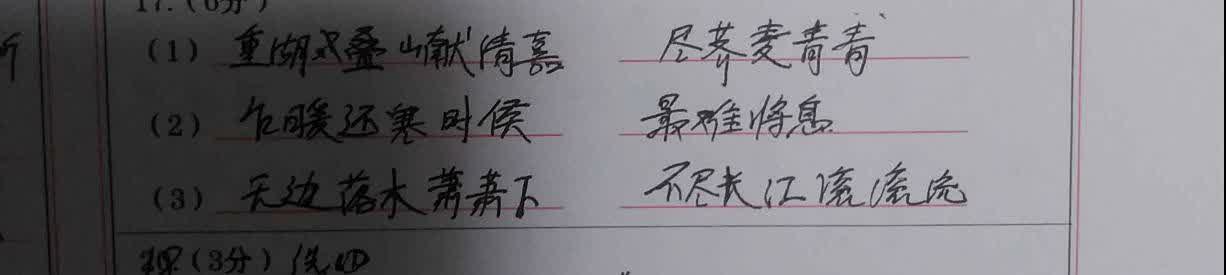 17.(6分)
(1) 重湖叠巘清嘉 尽荠麦青青
(2) 乍暖还寒时侯 最难将息
(3) 无边落木萧萧下 不尽长江滚滚流
(3分)